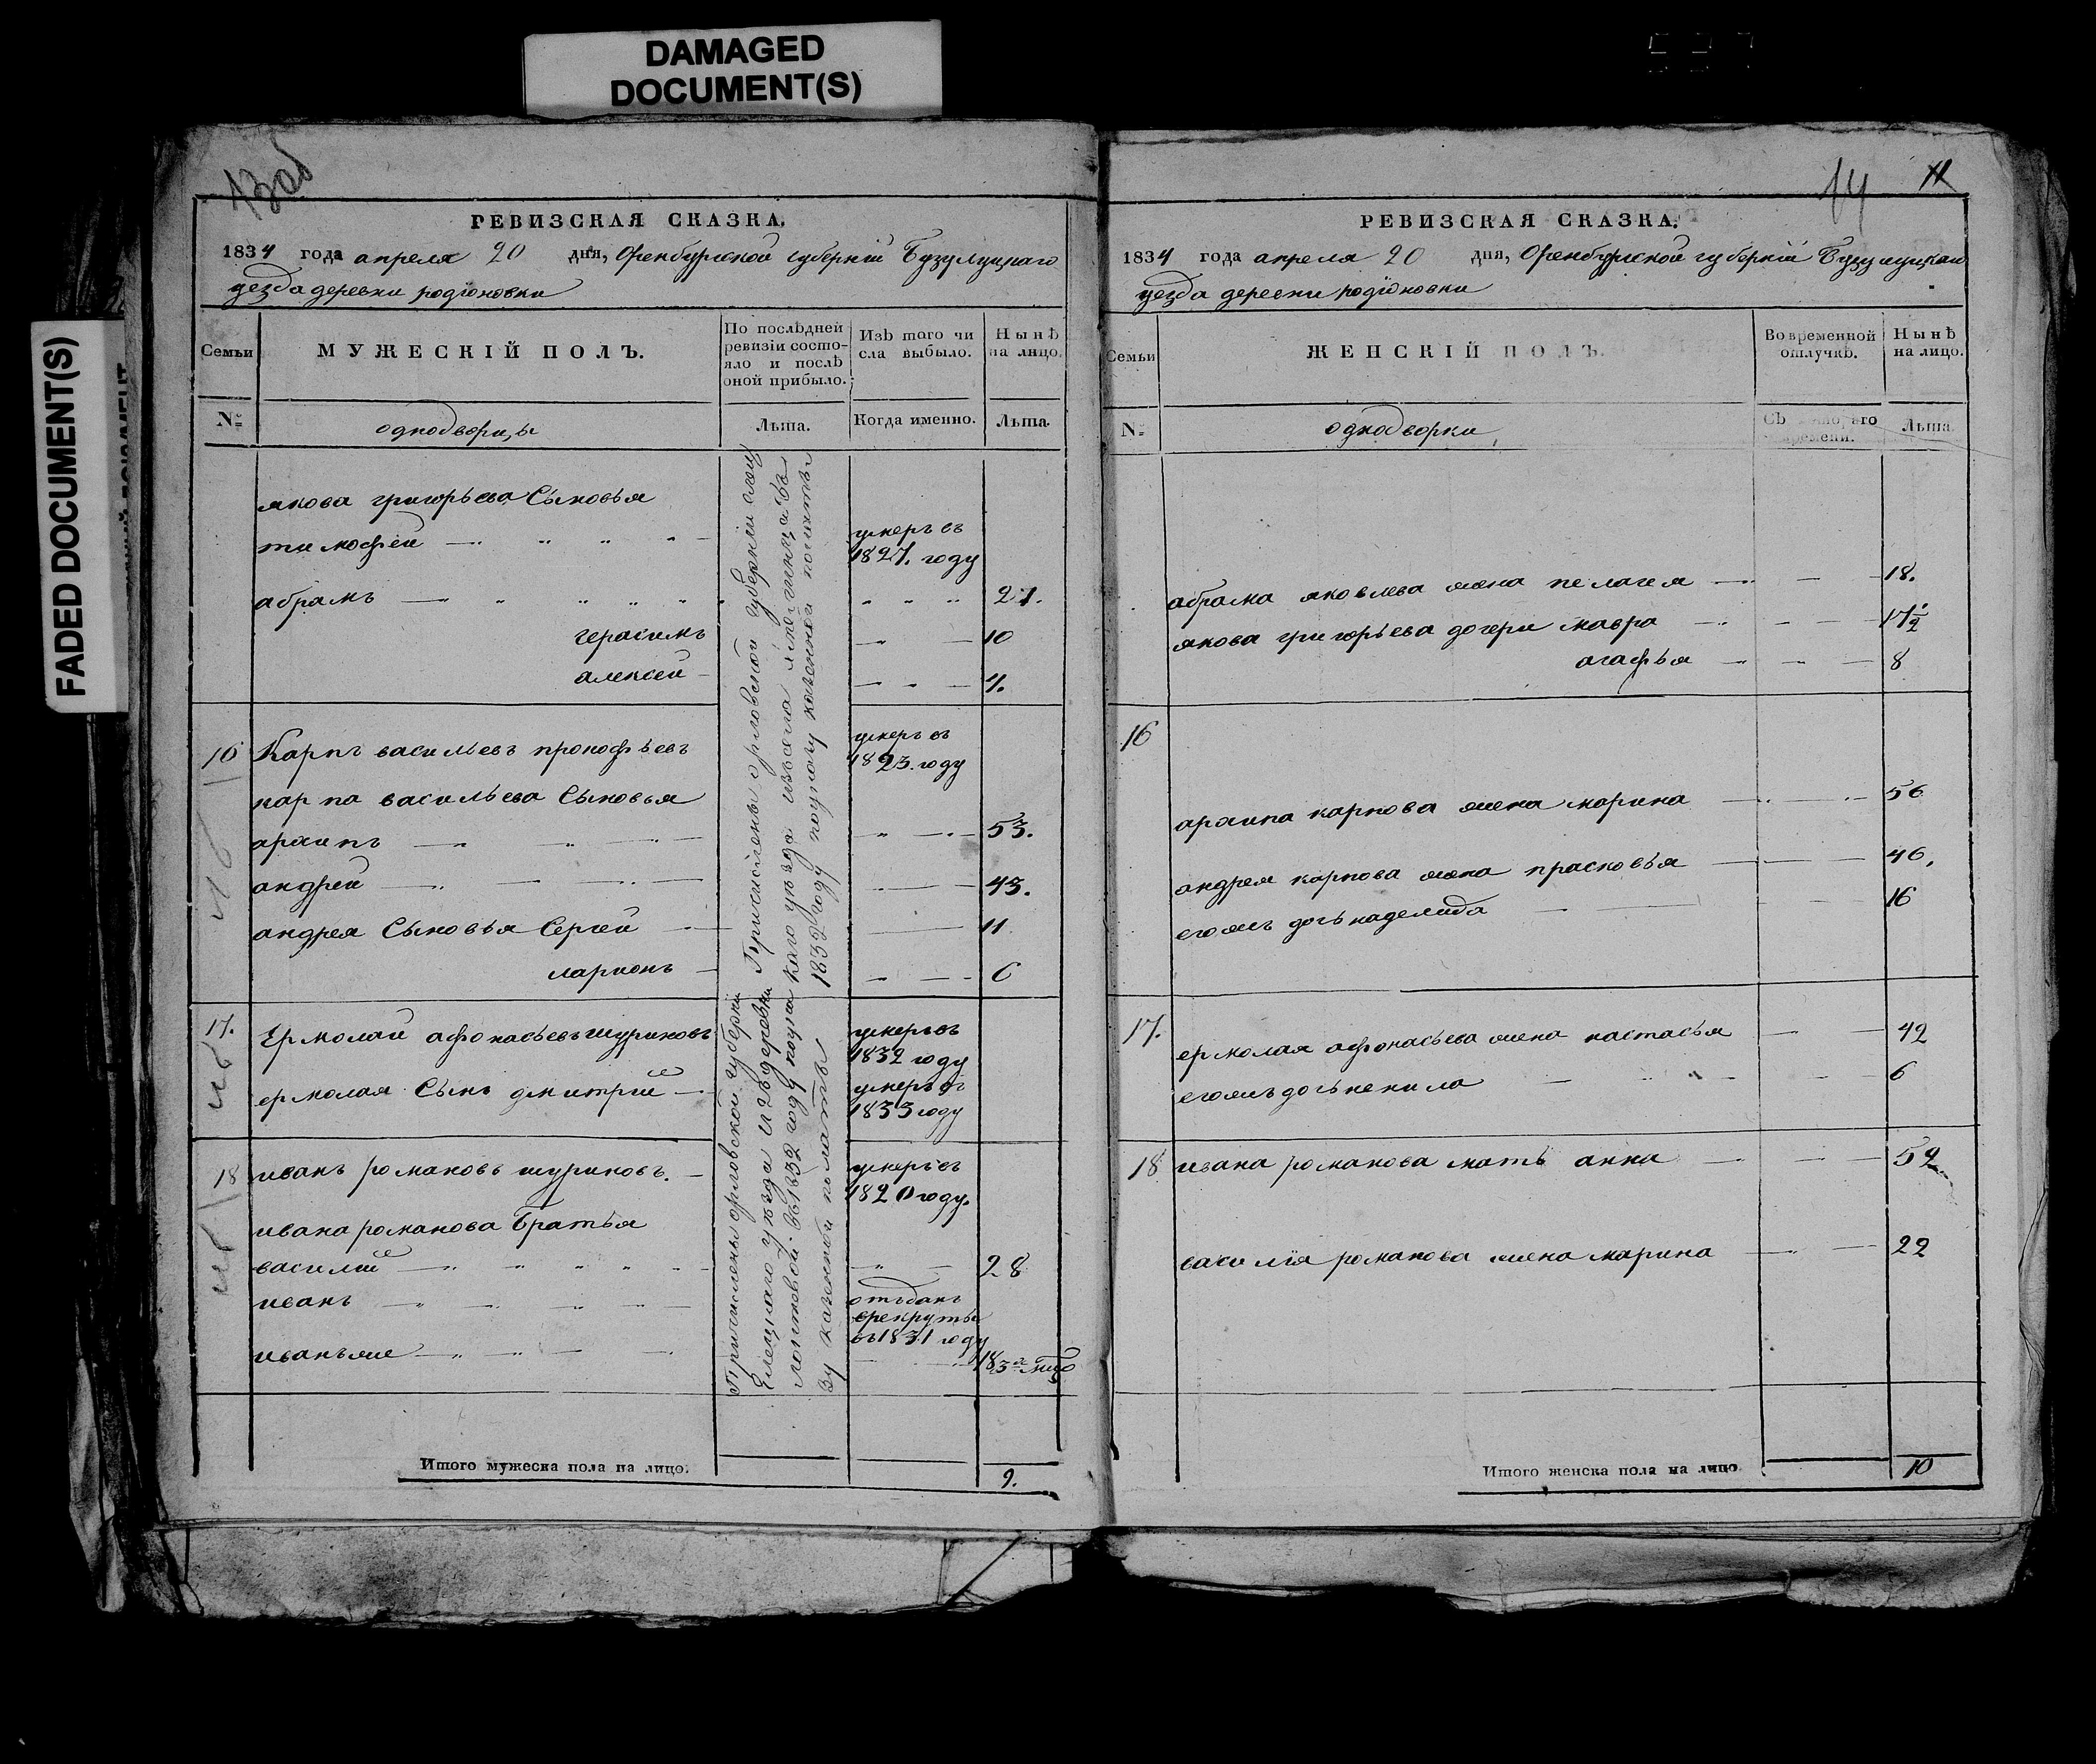 DAMAGED
DOCUMENT(S)
FADED DOCUMENT(S)
13об
РЕВИЗСКАЯ СКАЗКА.
1834 года апреля 20 дня, Оренбургской губернїи Бузулуцкаго
уезда деревни родїоновки
Семьи
МУЖЕСКІЙ ПОЛЪ.
По послѣдней
ревизіи состо-
яло и послѣ
оной прибыло.
Изъ того чи
сла выбыло.
Нынѣ
на лицо.
№
однодворцы
Лѣта.
Когда именно.
Лѣта.
якова григорьева Сыновья
тимофей
умеръ въ
1827. году
абрамъ 27.
герасимъ 10
алексей 7.
16 Карпъ васильевъ прокофьевъ
умеръ въ
1823. году
карпа васильева Сыновья
архипъ 53.
андрей 43.
андрея Сыновья Сергей 11
ларионъ 6
17. Ермолай афонасьевъ шуриновъ
умеръ въ
1832 году
ермолая Сынъ дмитрїй
умеръ въ
1833 году
18 иванъ романовъ шуриновъ.
умеръ въ
1820 году.
ивана романова Братья
василий 28
иванъ
отъданъ
врекруты
въ 1831 году
иванъже 18
Причислены орловской губернїи
Елецкаго уезда изъ деревни
въ 1832 году по указу казенной полаты
Причислены орловской губернїи
каго уезда
1832 году по указу казенной полаты
Итого мужеска пола на лицо.
9.
14 11
РЕВИЗСКАЯ СКАЗКА.
1834 года апреля 20 дня, Оренбургской губернїи Бузулуцкаго
уезда деревни родїоновки
Семьи
ЖЕНСКІЙ ПОЛЪ.
Во временной
отлучкѣ.
Нынѣ
на лицо.
№
однодворки
Съ котораго
времени.
Лѣта
абрама яковлева жена пелагея 18.
якова григорьева дочери мавра 17½
агафья 8
16
архипа карпова жена марина 56
андрея карпова жена прасковья 46.
егожъ дочь надежда 16
17.
ермолая афонасьева жена настасья 42
егожъ дочь ненила 6
18 ивана романова мать анна 52
василїя романова жена марина 22
Итого женска пола на лицо
10